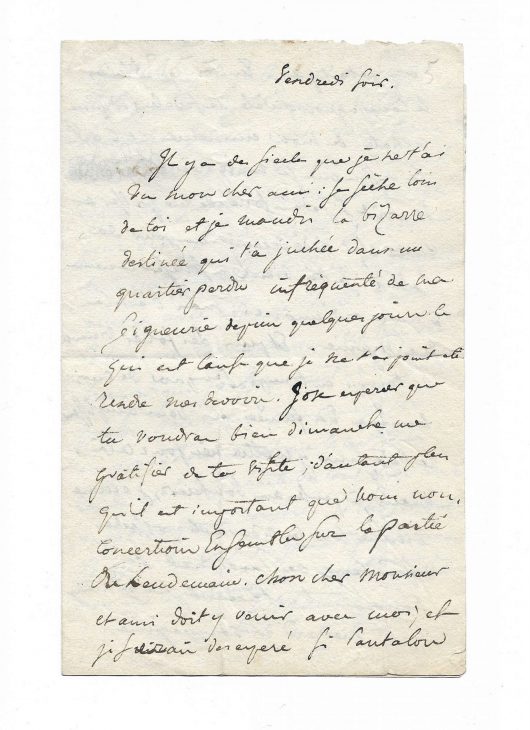 5
Vendredi soir.
Il y a des siecles que je ne t'ai
vu mon cher ami : je sèche loin
de toi et je maudis la bizarre
destinée qui t'a juchée dans un
quartier perdu infréquenté de ma
seigneurie depuis quelques jours ce
qui est cause que je ne t'ai point été
rendre mes devoirs. J'ose esperer que
tu voudras bien dimanche me
gratifier de ta visite ; d'autant plus
qu'il est important que nous nous
concertions Ensembles sur la partie
du Lendemain. mon cher Monsieur
et ami doit y venir avec moi, et
je serais desesperé si Pantalon